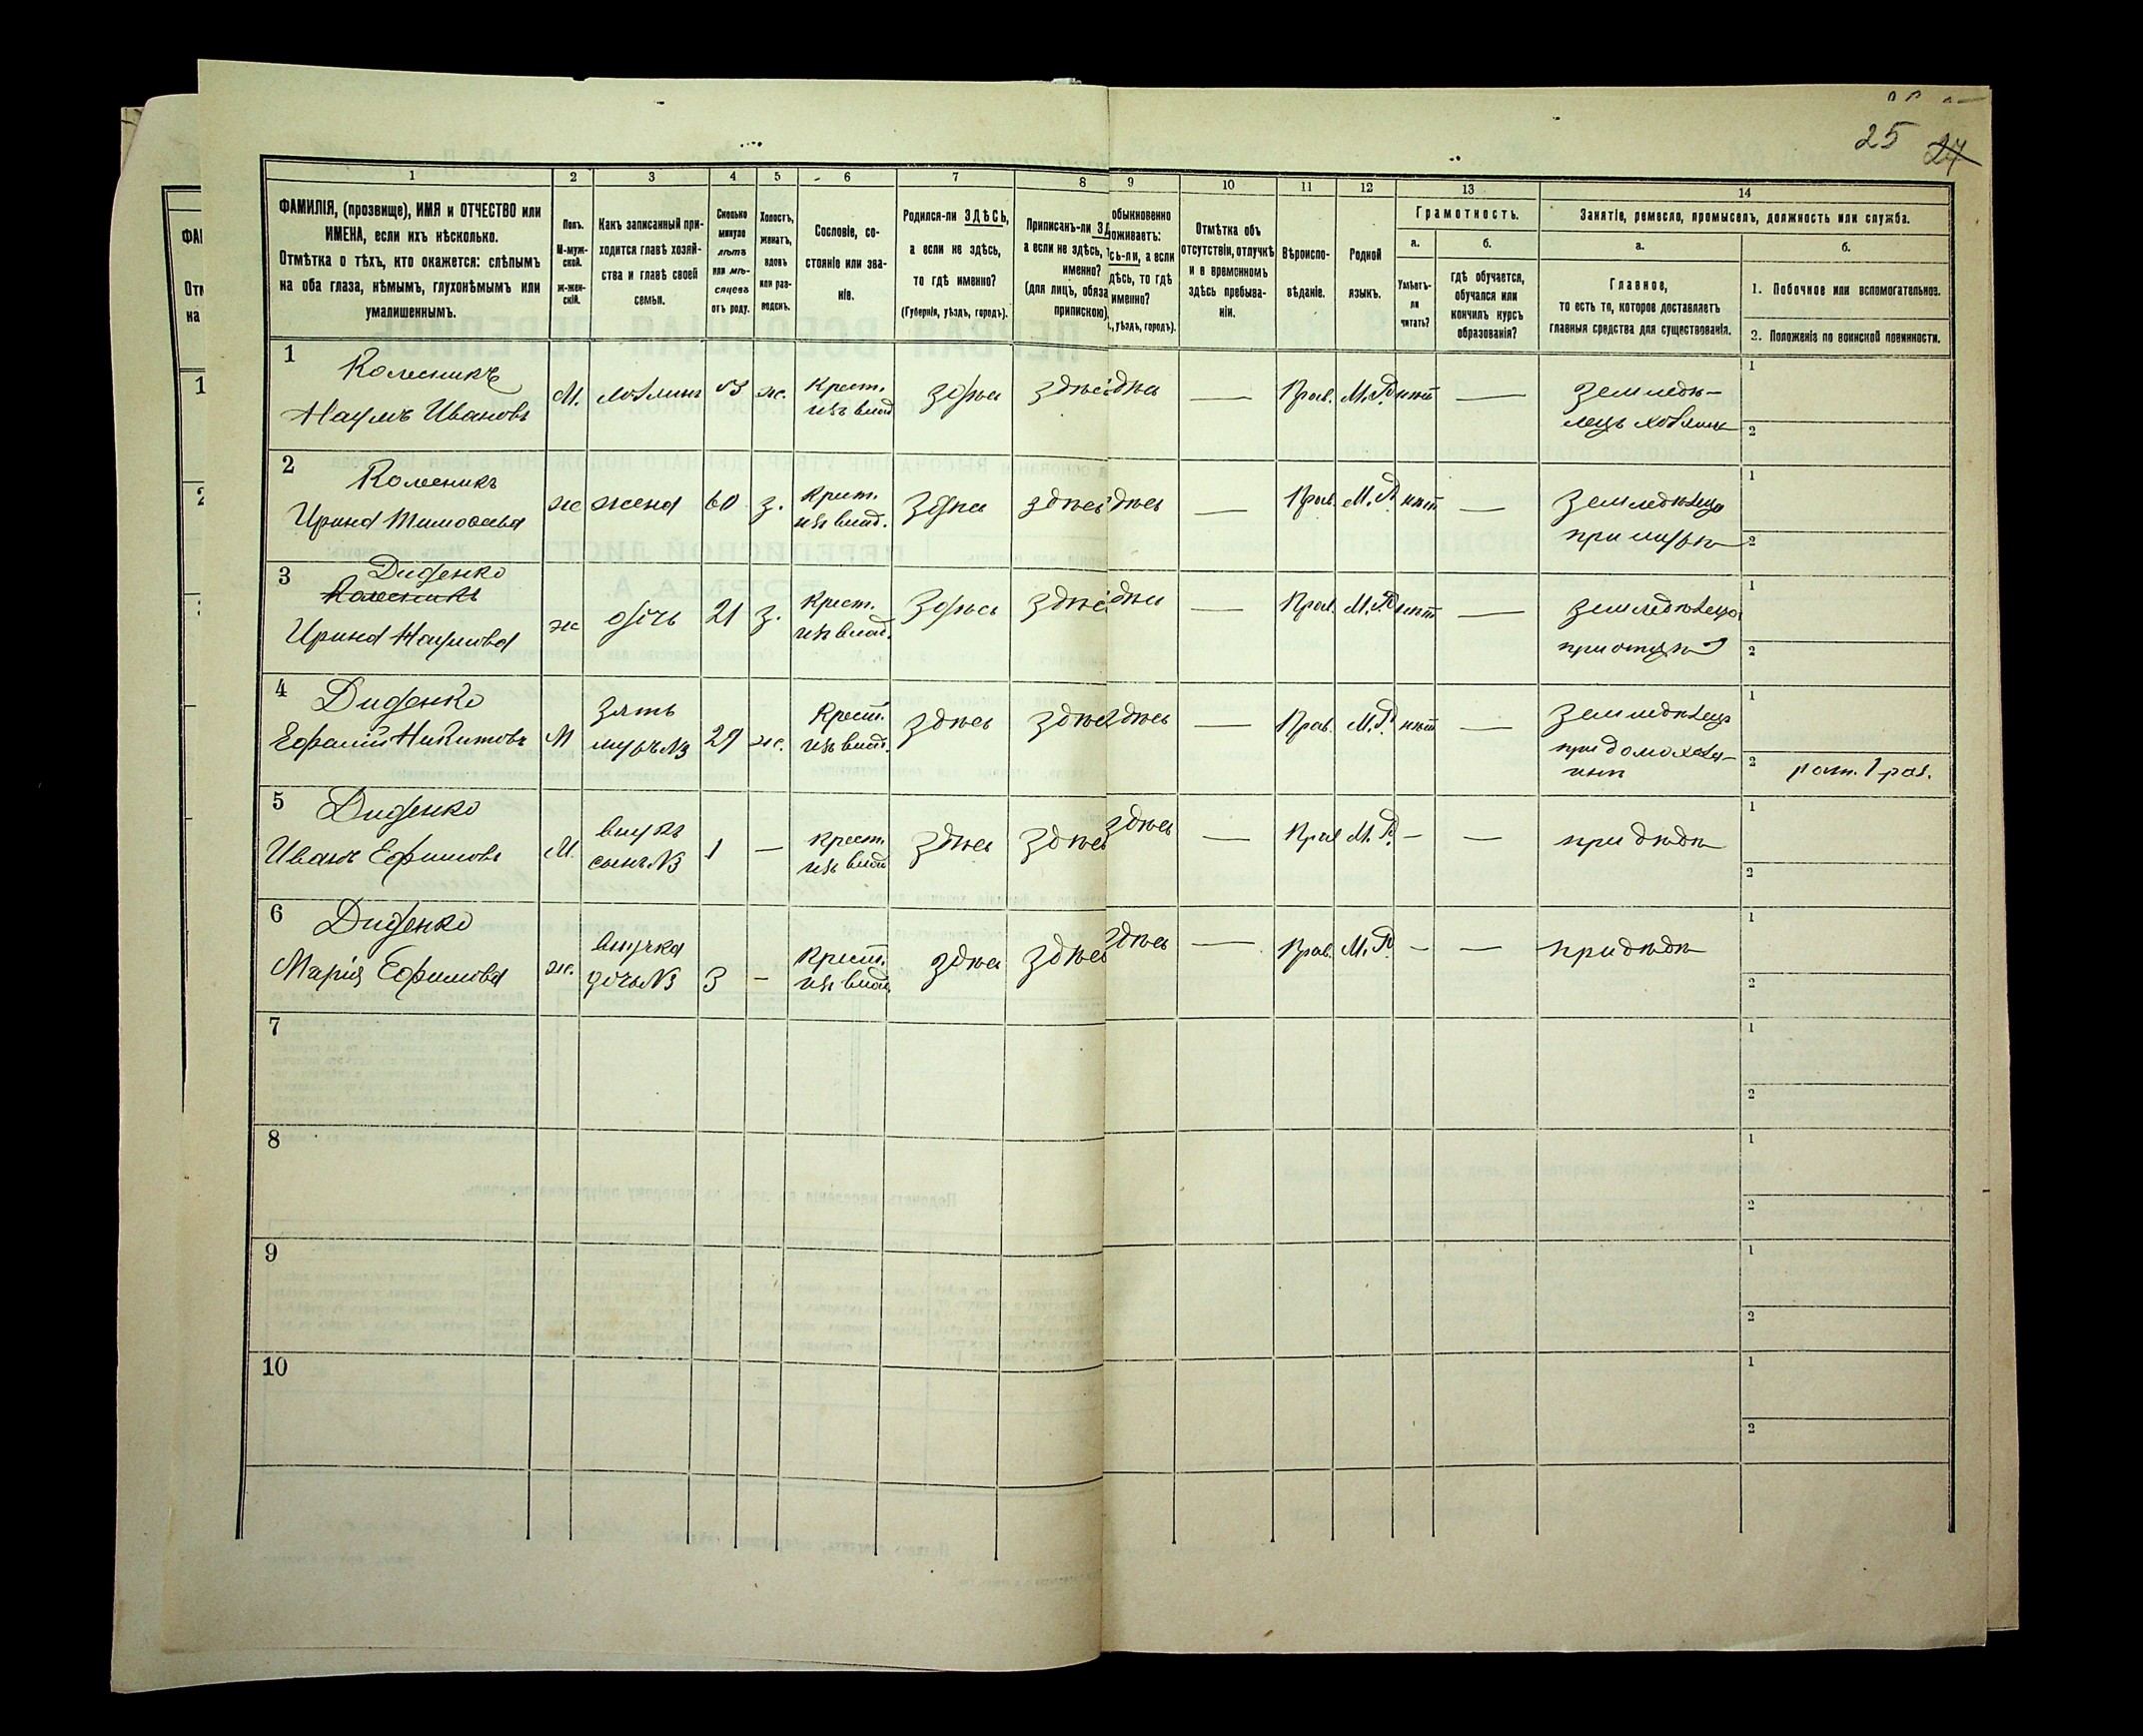 25 24
1 2 3 4 5 6 7 8 9 10 11 12 13 14
ФАМИЛІЯ, (прозвище), ИМЯ и ОТЧЕСТВО или
ИМЕНА, если ихъ нѣсколько.
Отмѣтка о тѣхъ, кто окажется: слѣпымъ
на оба глаза, нѣмымъ, глухонѣмымъ или
умалишеннымъ.
Полъ.
М-муж-
ской.
Ж-жен-
скій.
Какъ записанный при-
ходится главѣ хозяй-
ства и главѣ своей
семьи.
Сколько
минуло
лѣтъ
или мѣ-
сяцевъ
отъ роду.
Холостъ,
женатъ,
вдовъ
или раз-
веденъ.
Сословіе, со-
стояніе или зва-
ніе.
Родился-ли ЗДѢСЬ,
а если не здѣсь,
то гдѣ именно?
(Губернія, уѣздъ, городъ).
Приписанъ-ли
а если не здѣсь,
именно?
(для лицъ, обяза
припискою)
обыкновенно
оживаетъ:
сь-ли, а если
дѣсь, то гдѣ
именно?
уѣздъ, городъ).
Отмѣтка объ
отсутствіи, отлучкѣ
и в временномъ
здѣсь пребыва-
ніи.
Вѣроиспо-
вѣданіе.
Родной
языкъ.
Грамотность.
а. б.
Умѣетъ-
ли
читать?
гдѣ обучается,
обучался или
кончилъ курсъ
образованія?
Занятіе, ремесло, промыселъ, должность или служба.
а. б.
Главное,
то есть то, которое доставляетъ
главныя средства для существованія.
1. Побочное или вспомогательное.
2. Положеніе по воинской повинности.
1 Колесникъ
Наумъ Ивановъ М. хозяинъ ж. Крест. изъ влад. здѣсь здѣсь — Прав. М.Р. нѣтъ — земледѣ-
лецъ хозяинъ
1
2
2 Колесникъ
Ирина ж жена 60 з. Крест. изъ влад. здѣсь здѣсь — Прав. М.Р. нѣтъ — земледѣлеца
при мужѣ
1
2
3 Диденко
Колесникъ
Ирина Наумова ж дочь 21 з. Крест. изъ влад. здѣсь здѣсь — Прав. М.Р. нѣтъ — земледѣлеца
при отцѣ
1
2
4 Диденко
Никитовъ М зять мужъ №3 29 ж. Крест. изъ влад. здѣсь здѣсь здѣсь — Прав. М.Р. нѣтъ — земледѣлецъ
при домохозя-
инѣ
1
2 рат. 1 раз.
5 Диденко
Иванъ Ефимовъ М. внукъ сынъ №3 1 — Крест. изъ влад. здѣсь здѣсь здѣсь — Прав М.Р. — — при дѣдѣ
1
2
6 Диденко
Марія Ефимова ж. внучка дочь №3 3 - Крест. изъ влад. здѣсь здѣсь здѣсь — Прав. М.Р. - — при дѣдѣ
1
2
7
1
2
8
1
2
9
1
2
10
1
2